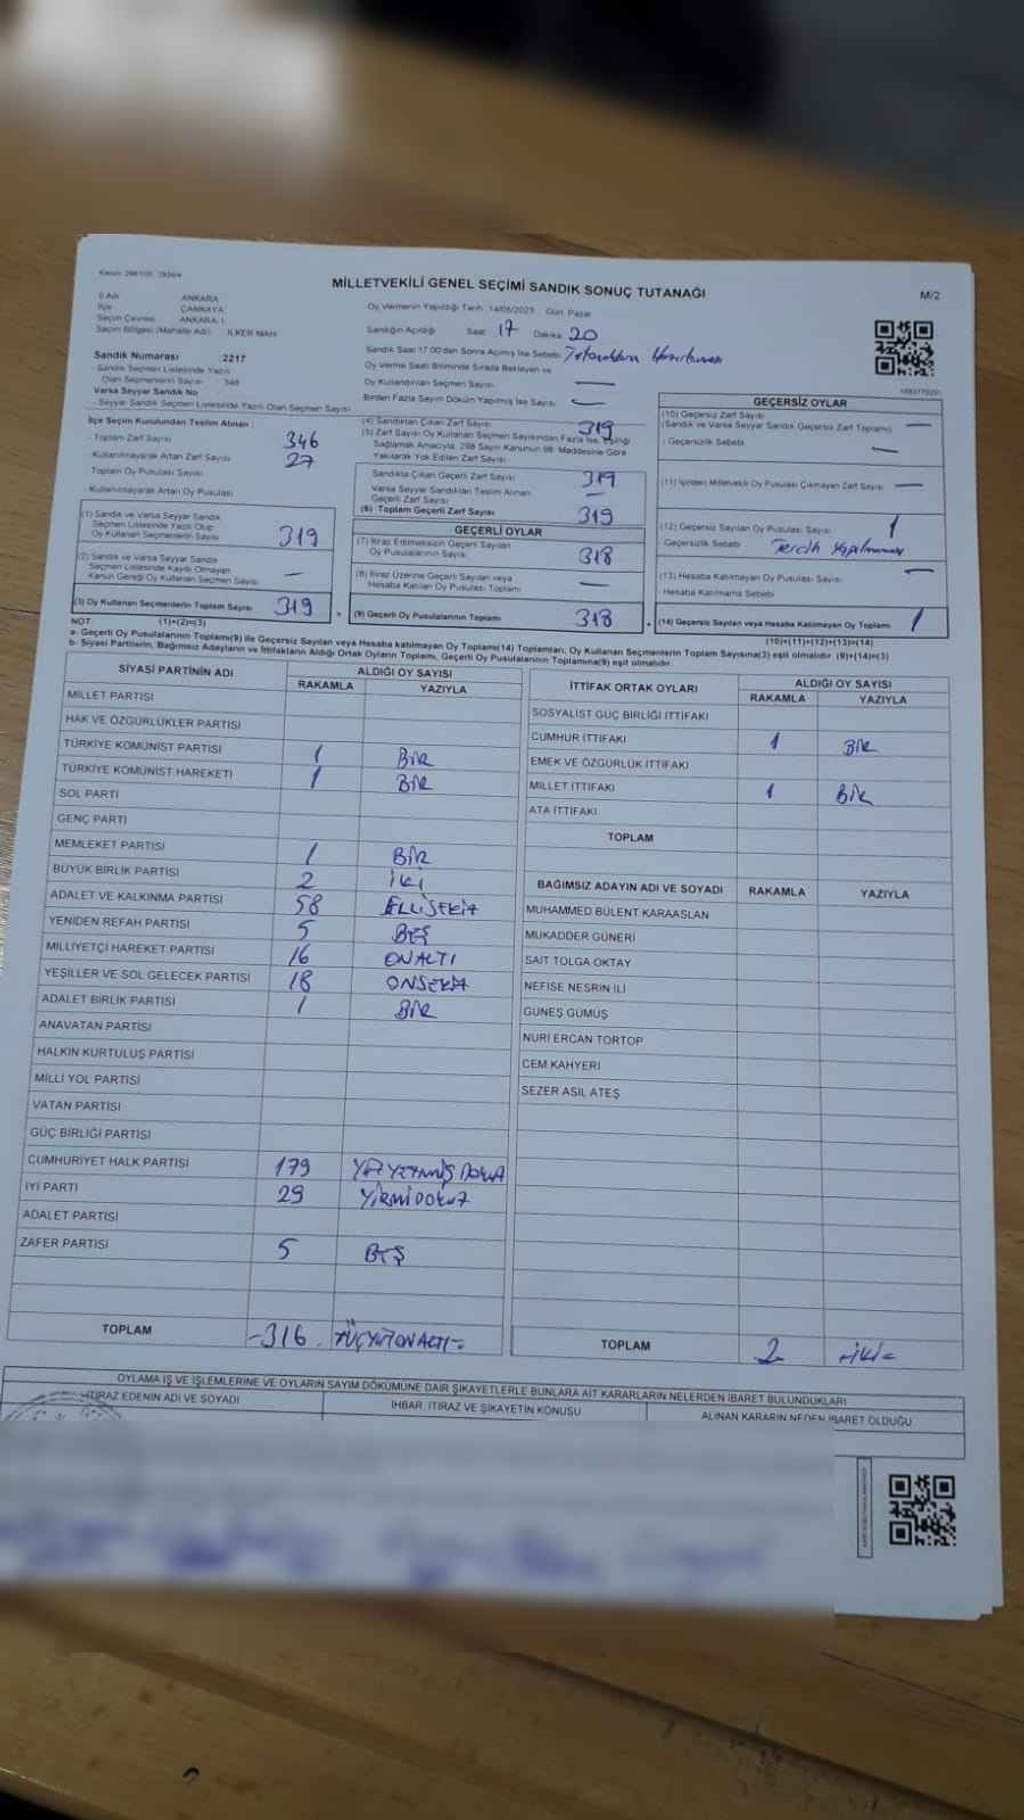 MİLLETVEKİLİ GENEL SEÇİMİ SANDIK SONUÇ TUTANAĞI
M/2
İl Adı ANKARA
İlçe ÇANKAYA
Seçim Çevresi ANKARA 1
Seçim Bölgesi (Mahalle Adı) İLKER MAH
Oy Vermenin Yapıldığı Tarih 14/05/2023 Gün Pazar
Sandığın Açıldığı Saat 17 Dakika 20
Sandık Numarası 2217
Sandık Saat 17:00'den Sonra Açılmış İse Sebebi
Sandık Seçmen Listesinde Yazılı
Olan Seçmenlerin Sayısı
Oy Verme Saati Bitiminde Sırada Bekleyen ve
Oy Kullandırılan Seçmen Sayısı —
Varsa Seyyar Sandık No
Seyyar Sandık Seçmen Listesinde Yazılı Olan Seçmen Sayısı
Birden Fazla Sayım Döküm Yapılmış İse Sayısı —
İlçe Seçim Kurulundan Teslim Alınan :
Toplam Zarf Sayısı 346
Kullanılmayarak Artan Zarf Sayısı 27
Toplam Oy Pusulası Sayısı
Kullanılmayarak Artan Oy Pusulası
(1) Sandık ve Varsa Seyyar Sandık
Seçmen Listesinde Yazılı Olup
Oy Kullanan Seçmenlerin Sayısı 319
(2) Sandık ve Varsa Seyyar Sandık
Seçmen Listesinde Kayıtlı Olmayan
Kanun Gereği Oy Kullanan Seçmen Sayısı —
(3) Oy Kullanan Seçmenlerin Toplam Sayısı 319
(4) Sandıktan Çıkan Zarf Sayısı 319
(5) Zarf Sayısı Oy Kullanan Seçmen Sayısından Fazla İse, Eşitliği
Sağlamak Amacıyla, 298 Sayılı Kanunun 98. Maddesine Göre
Yakılarak Yok Edilen Zarf Sayısı
Sandıkta Çıkan Geçerli Zarf Sayısı 319
Varsa Seyyar Sandıktan Teslim Alınan
Geçerli Zarf Sayısı —
(6) Toplam Geçerli Zarf Sayısı 319
GEÇERLİ OYLAR
(7) İtiraz Edilmeksizin Geçerli Sayılan
Oy Pusulalarının Sayısı 318
(8) İtiraz Üzerine Geçerli Sayılan veya
Hesaba Katılan Oy Pusulası Toplamı —
(9) Geçerli Oy Pusulalarının Toplamı 318
GEÇERSİZ OYLAR
(10) Geçersiz Zarf Sayısı
(Sandık ve Varsa Seyyar Sandık Geçersiz Zarf Toplamı) —
Geçersizlik Sebebi —
(11) İçinden Milletvekili Oy Pusulası Çıkmayan Zarf Sayısı —
(12) Geçersiz Sayılan Oy Pusulası Sayısı 1
Geçersizlik Sebebi Tercih Yapılmaması
(13) Hesaba Katılmayan Oy Pusulası Sayısı —
Hesaba Katılmama Sebebi
(14) Geçersiz Sayılan veya Hesaba Katılmayan Oy Toplamı 1
NOT (1)+(2)=(3)
(10)+(11)+(12)+(13)=(14)
a- Geçerli Oy Pusulalarının Toplamı(9) ile Geçersiz Sayılan veya Hesaba katılmayan Oy Toplamı(14) Toplamları, Oy Kullanan Seçmenlerin Toplam Sayısına(3) eşit olmalıdır. (9)+(14)=(3)
b- Siyasi Partilerin, Bağımsız Adayların ve İttifakların Aldığı Ortak Oyların Toplamı, Geçerli Oy Pusulalarının Toplamına(9) eşit olmalıdır.
SİYASİ PARTİNİN ADI ALDIĞI OY SAYISI
RAKAMLA YAZIYLA
MİLLET PARTİSİ
HAK VE ÖZGÜRLÜKLER PARTİSİ
TÜRKİYE KOMÜNİST PARTİSİ 1 BİR
TÜRKİYE KOMÜNİST HAREKETİ 1 BİR
SOL PARTİ
GENÇ PARTİ
MEMLEKET PARTİSİ 1 BİR
BÜYÜK BİRLİK PARTİSİ 2 İKİ
ADALET VE KALKINMA PARTİSİ 58 ELLİSEKİZ
YENİDEN REFAH PARTİSİ 5 BEŞ
MİLLİYETÇİ HAREKET PARTİSİ 16 ONALTI
YEŞİLLER VE SOL GELECEK PARTİSİ 18 ONSEKİZ
ADALET BİRLİK PARTİSİ 1 BİR
ANAVATAN PARTİSİ
HALKIN KURTULUŞ PARTİSİ
MİLLİ YOL PARTİSİ
VATAN PARTİSİ
GÜÇ BİRLİĞİ PARTİSİ
CUMHURİYET HALK PARTİSİ 179 YÜZ YETMİŞ DOKUZ
İYİ PARTİ 29 YİRMİDOKUZ
ADALET PARTİSİ
ZAFER PARTİSİ 5 BEŞ
TOPLAM -316. ÜÇYÜZONALTI-
İTTİFAK ORTAK OYLARI ALDIĞI OY SAYISI
RAKAMLA YAZIYLA
SOSYALİST GÜÇ BİRLİĞİ İTTİFAKI
CUMHUR İTTİFAKI 1 BİR
EMEK VE ÖZGÜRLÜK İTTİFAKI
MİLLET İTTİFAKI 1 BİR
ATA İTTİFAKI
TOPLAM
BAĞIMSIZ ADAYIN ADI VE SOYADI RAKAMLA YAZIYLA
MUHAMMED BÜLENT KARAASLAN
MUKADDER GÜNERİ
SAİT TOLGA OKTAY
NEFİSE NESRİN İLİ
GÜNEŞ GÜMÜŞ
NURİ ERCAN TORTOP
CEM KAHYERİ
SEZER ASIL ATEŞ
TOPLAM 2 -İKİ-
OYLAMA İŞ VE İŞLEMLERİNE VE OYLARIN SAYIM DÖKÜMÜNE DAİR ŞİKAYETLERLE BUNLARA AİT KARARLARIN NELERDEN İBARET BULUNDUKLARI
İTİRAZ EDENİN ADI VE SOYADI
İHBAR, İTİRAZ VE ŞİKAYETİN KONUSU
ALINAN KARARIN NEDEN İBARET OLDUĞU